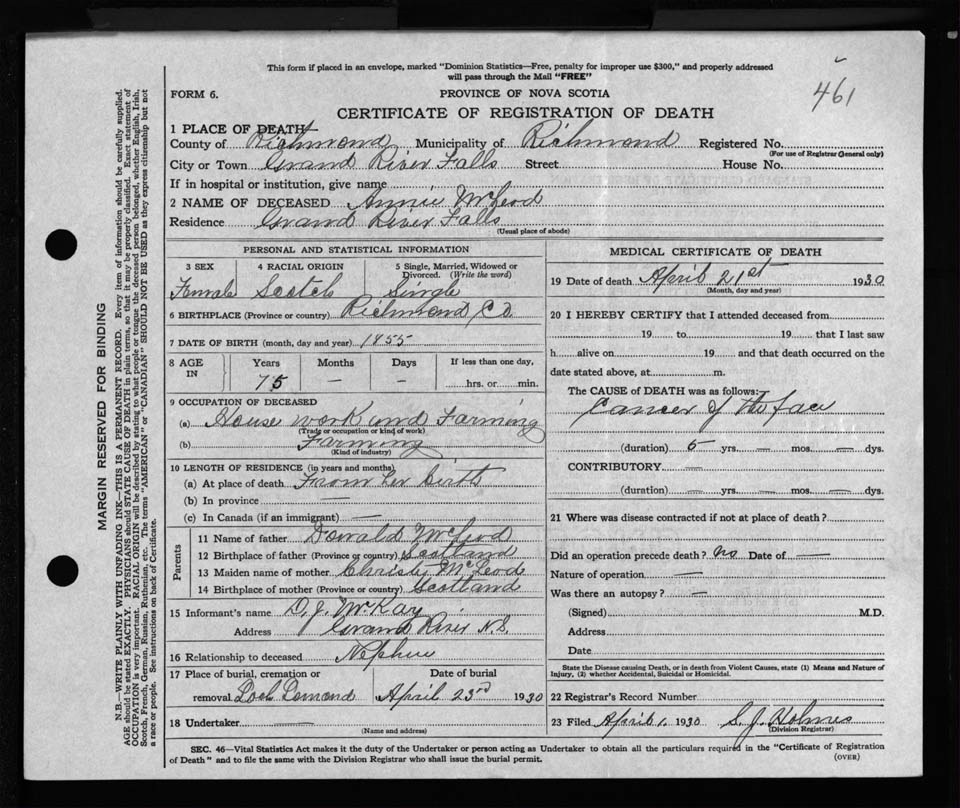 This form if placed in an envelope, marked "Dominion Statistics—Free, penalty for improper use $300," and properly addressed
will pass through the Mail "FREE"
461
FORM 6.
PROVINCE OF NOVA SCOTIA
CERTIFICATE OF REGISTRATION OF DEATH
1 PLACE OF DEATH
County of Richmond Municipality of Richmond Registered No.
(For use of Registrar General only)
City or Town Grand River Falls Street House No.
If in hospital or institution, give name
2 NAME OF DECEASED Annie McLeod
Residence Grand River Falls
(Usual place of abode)
PERSONAL AND STATISTICAL INFORMATION
3 SEX 4 RACIAL ORIGIN 5 Single, Married, Widowed or Divorced. (Write the word)
Female Scotch Single
6 BIRTHPLACE (Province or country) Richmond Co.
7 DATE OF BIRTH (month, day and year) 1855
8 AGE IN Years Months Days If less than one day,
75 — — hrs. or min.
9 OCCUPATION OF DECEASED
(a) House work and Farming
(Trade or occupation or kind of work)
(b) Farming
(Kind of industry)
10 LENGTH OF RESIDENCE (in years and months)
(a) At place of death From her birth
(b) In province —
(c) In Canada (if an immigrant) —
Parents
11 Name of father Donald McLeod
12 Birthplace of father (Province or country) Scotland
13 Maiden name of mother Christy McLeod
14 Birthplace of mother (Province or country) Scotland
15 Informant's name D. J. McKay
Address Grand River N.S.
16 Relationship to deceased Nephew
17 Place of burial, cremation or removal Loch Lomond
Date of burial April 23rd 1930
18 Undertaker —
(Name and address)
MEDICAL CERTIFICATE OF DEATH
19 Date of death April 21st 1930
(Month, day and year)
20 I HEREBY CERTIFY that I attended deceased from
19 to 19 that I last saw
h alive on 19 and that death occurred on the
date stated above, at m.
The CAUSE of DEATH was as follows:
Cancer of the face
(duration) 5 yrs. — mos. — dys.
CONTRIBUTORY —
(duration) — yrs. — mos. — dys.
21 Where was disease contracted if not at place of death?
Did an operation precede death? no Date of —
Nature of operation —
Was there an autopsy? —
(Signed) M.D.
Address
Date
State the Disease causing Death, or in death from Violent Causes, state (1) Means and Nature of
Injury, (2) whether Accidental, Suicidal or Homicidal.
22 Registrar's Record Number
23 Filed April 1, 1930 S. J. Holmes
(Division Registrar)
SEC. 46—Vital Statistics Act makes it the duty of the Undertaker or person acting as Undertaker to obtain all the particulars required in the "Certificate of Registration
of Death" and to file the same with the Division Registrar who shall issue the burial permit.
(OVER)
MARGIN RESERVED FOR BINDING
N.B.—WRITE PLAINLY WITH UNFADING INK—THIS IS A PERMANENT RECORD. Every item of information should be carefully supplied.
AGE should be stated EXACTLY. PHYSICIANS should STATE CAUSE OF DEATH in plain terms, so that it may be properly classified. Exact statement of
OCCUPATION is very important. RACIAL ORIGIN will be described by stating to what people or tongue the deceased person belonged, whether English, Irish,
Scotch, French, German, Russian, Ruthenian, etc. The terms "AMERICAN" or "CANADIAN" SHOULD NOT BE USED as they express citizenship but not
a race or people. See instructions on back of Certificate.